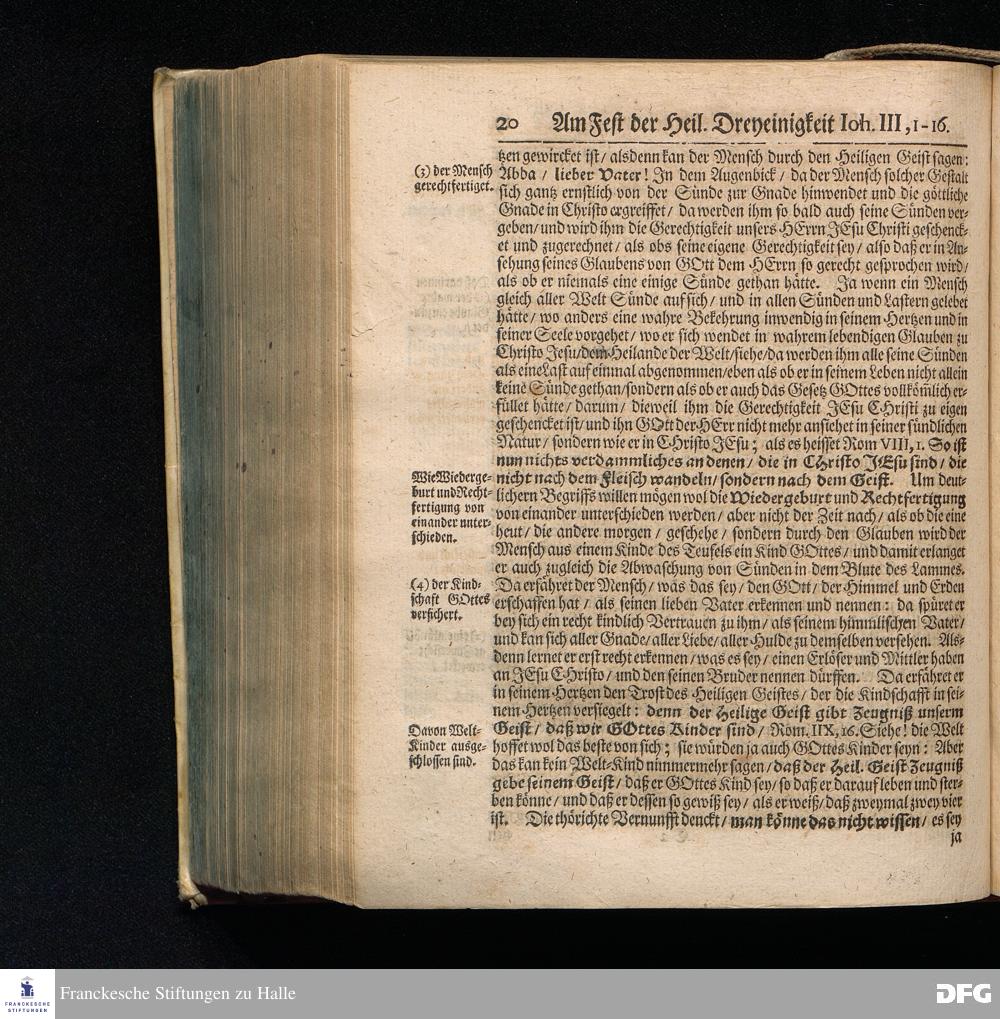 20 Am Fest der Heil. Dreyeinigkeit Ioh. III, 1-16.
tzen gewircket ist/ alsdenn kan der Mensch durch den Heiligen Geist sagen:
(3) der Mensch
gerechtfertiget.
Abba / lieber Vater! In dem Augenbick / da der Mensch solcher Gestalt
sich gantz ernstlich von der Sünde zur Gnade hinwendet und die göttliche
Gnade in Christo ergreiffet/ da werden ihm so bald auch seine Sünden ver-
geben/ und wird ihm die Gerechtigkeit unsers HErrn JEsu Christi geschenck-
et und zugerechnet/ als obs seine eigene Gerechtigkeit sey/ also daß er in An-
sehung seines Glaubens von GOtt dem HErrn so gerecht gesprochen wird/
als ob er niemals eine einige Sünde gethan hätte. Ja wenn ein Mensch
gleich aller Welt Sünde auf sich/ und in allen Sünden und Lastern gelebet
hätte/ wo anders eine wahre Bekehrung inwendig in seinem Hertzen und in
seiner Seele vorgehet/ wo er sich wendet in wahrem lebendigen Glauben zu
Christo Jesu/ dem Heilande der Welt/ siehe/ da werden ihm alle seine Sünden
als eine Last auf einmal abgenommen/ eben als ob er in seinem Leben nicht allein
keine Sünde gethan/ sondern als ob er auch das Gesetz GOttes vollköm̃lich er-
füllet hätte/ darum/ dieweil ihm die Gerechtigkeit JEsu CHristi zu eigen
geschencket ist/ und ihn GOtt der HErr nicht mehr ansiehet in seiner sündlichen
Natur/ sondern wie er in CHristo JEsu; als es heisset Rom VIII, 1. So ist
nun nichts verdammliches an denen/ die in CHristo JEsu sind/ die
Wie Wiederge-
burt und Recht-
fertigung von
einander unter-
schieden.
nicht nach dem Fleisch wandeln/ sondern nach dem Geist. Um deut-
lichern Begriffs willen mögen wol die Wiedergeburt und Rechtfertigung
von einander unterschieden werden/ aber nicht der Zeit nach/ als ob die eine
heut/ die andere morgen/ geschehe/ sondern durch den Glauben wird der
Mensch aus einem Kinde des Teufels ein Kind GOttes/ und damit erlanget
er auch zugleich die Abwaschung von Sünden in dem Blute des Lammes.
(4) der Kind-
schaft GOttes
versichert.
Da erfähret der Mensch/ was das sey/ den GOtt/ der Himmel und Erden
erschaffen hat/ als seinen lieben Vater erkennen und nennen: da spüret er
bey sich ein recht kindlich Vertrauen zu ihm/ als seinem himmlischen Vater/
und kan sich aller Gnade/ aller Liebe/ aller Hulde zu demselben versehen. Als-
denn lernet er erst recht erkennen/ was es sey/ einen Erlöser und Mittler haben
an JEsu CHristo/ und den seinen Bruder nennen dürffen. Da erfähret er
in seinem Hertzen den Trost des Heiligen Geistes/ der die Kindschafft in sei-
nem Hertzen versiegelt: denn der Heilige Geist gibt Zeugniß unserm
Davon Welt-
Kinder ausge-
schlossen sind.
Geist/ daß wir GOttes Kinder sind/ Rom. IIX, 16. Siehe! die Welt
hoffet wol das beste von sich; sie würden ja auch GOttes Kinder seyn: Aber
das kan kein Welt-Kind nimmermehr sagen/ daß der Heil. Geist Zeugniß
gebe seinem Geist/ daß er GOttes Kind sey/ so daß er darauf leben und ster-
ben könne/ und daß er dessen so gewiß sey/ als er weiß/ daß zweymal zwey vier
ist. Die thörichte Vernunfft denckt/ man könne das nicht wissen/ es sey
ja
FRANCKESCHE
STIFTUNGEN
Franckesche Stiftungen zu Halle
DFG